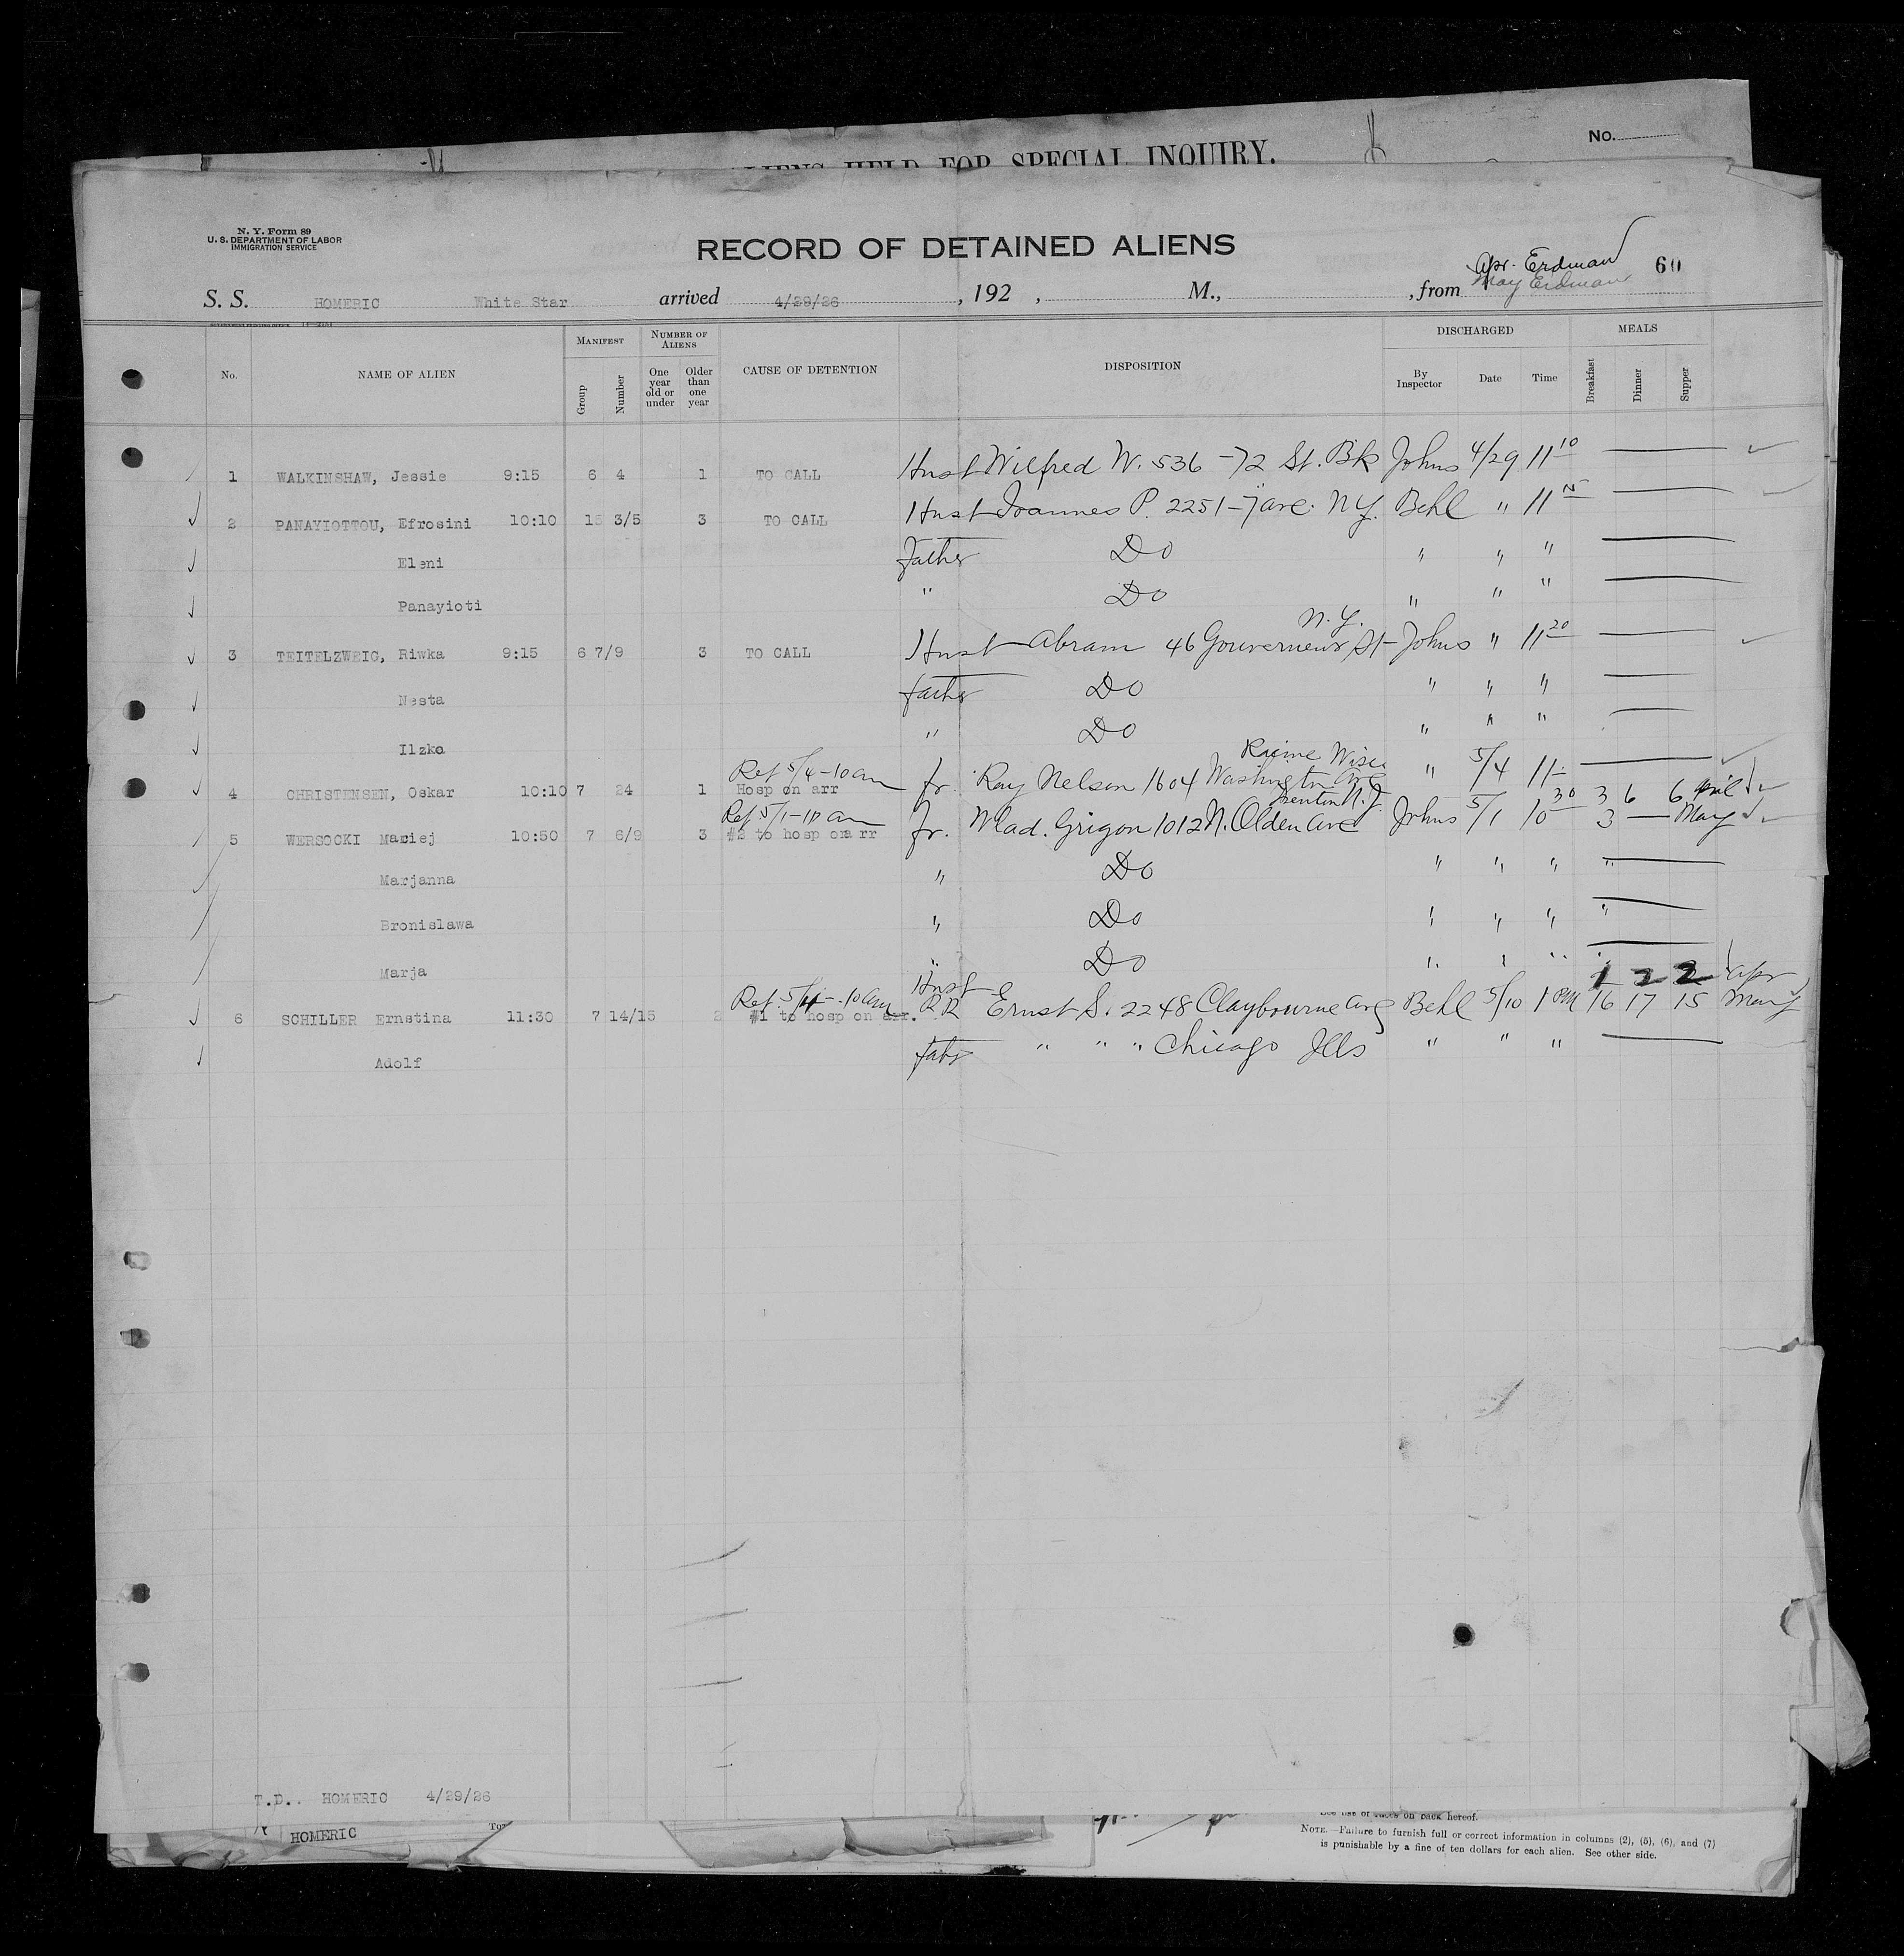 No.
ALIENS HELD FOR SPECIAL INQUIRY.
N. Y. Form 89
U. S. DEPARTMENT OF LABOR
IMMIGRATION SERVICE
RECORD OF DETAINED ALIENS
Apr. Erdman 60
May Erdman
S. S. HOMERIC White Star arrived 4/29/26, 192 , M., , from
No. NAME OF ALIEN MANIFEST NUMBER OF ALIENS CAUSE OF DETENTION DISPOSITION DISCHARGED MEALS
Group Number One year old or under Older than one year By Inspector Date Time Breakfast Dinner Supper
1 WALKINSHAW, Jessie 9:15 6 4 1 TO CALL Husb Wilfred W. 536 - 72 St. Bk Johns 4/29 11 10
2 PANAYIOTTOU, Efrosini 10:10 15 3/5 3 TO CALL Husb Ioannes P. 2251 - 7 ave. N.Y. Behl " 11 15
Eleni Father Do " " "
Panayioti " Do " " "
N.Y.
3 TEITELZWEIG, Riwka 9:15 6 7/9 3 TO CALL Husb Abram 46 Gouverneur St Johns " 11 20
Nesta father Do " " "
Ilzko " Do " " "
Ref 5/4 - 10 am Racine Wisc
4 CHRISTENSEN, Oskar 10:10 7 24 1 Hosp on arr fr. Ray Nelson 1604 Washington Ave " 5/4 11-
Ref 5/1 - 10 am Trenton N.J. 3 6 6
5 WERSOCKI Maciej 10:50 7 6/9 3 #2 to hosp on arr fr. Wlad. Grigon 1012 N. Olden Ave Johns 5/1 10 30 3 — May
Marjanna " Do " " " "
Bronislawa " Do " " " "
Marja " Do " " " "
Husb 1 2 2 Apr
Ref 5/4 - 10 am
6 SCHILLER Ernstina 11:30 7 14/15 2 #1 to hosp on arr. RR Ernst S. 2248 Claybourne Ave Behl 5/10 1 PM 16 17 15 May
Adolf fath " " " Chicago Ills " " "
T.D.. HOMERIC 4/29/26
HOMERIC
See list of races on back hereof.
NOTE.—Failure to furnish full or correct information in columns (2), (5), (6), and (7)
is punishable by a fine of ten dollars for each alien. See other side.